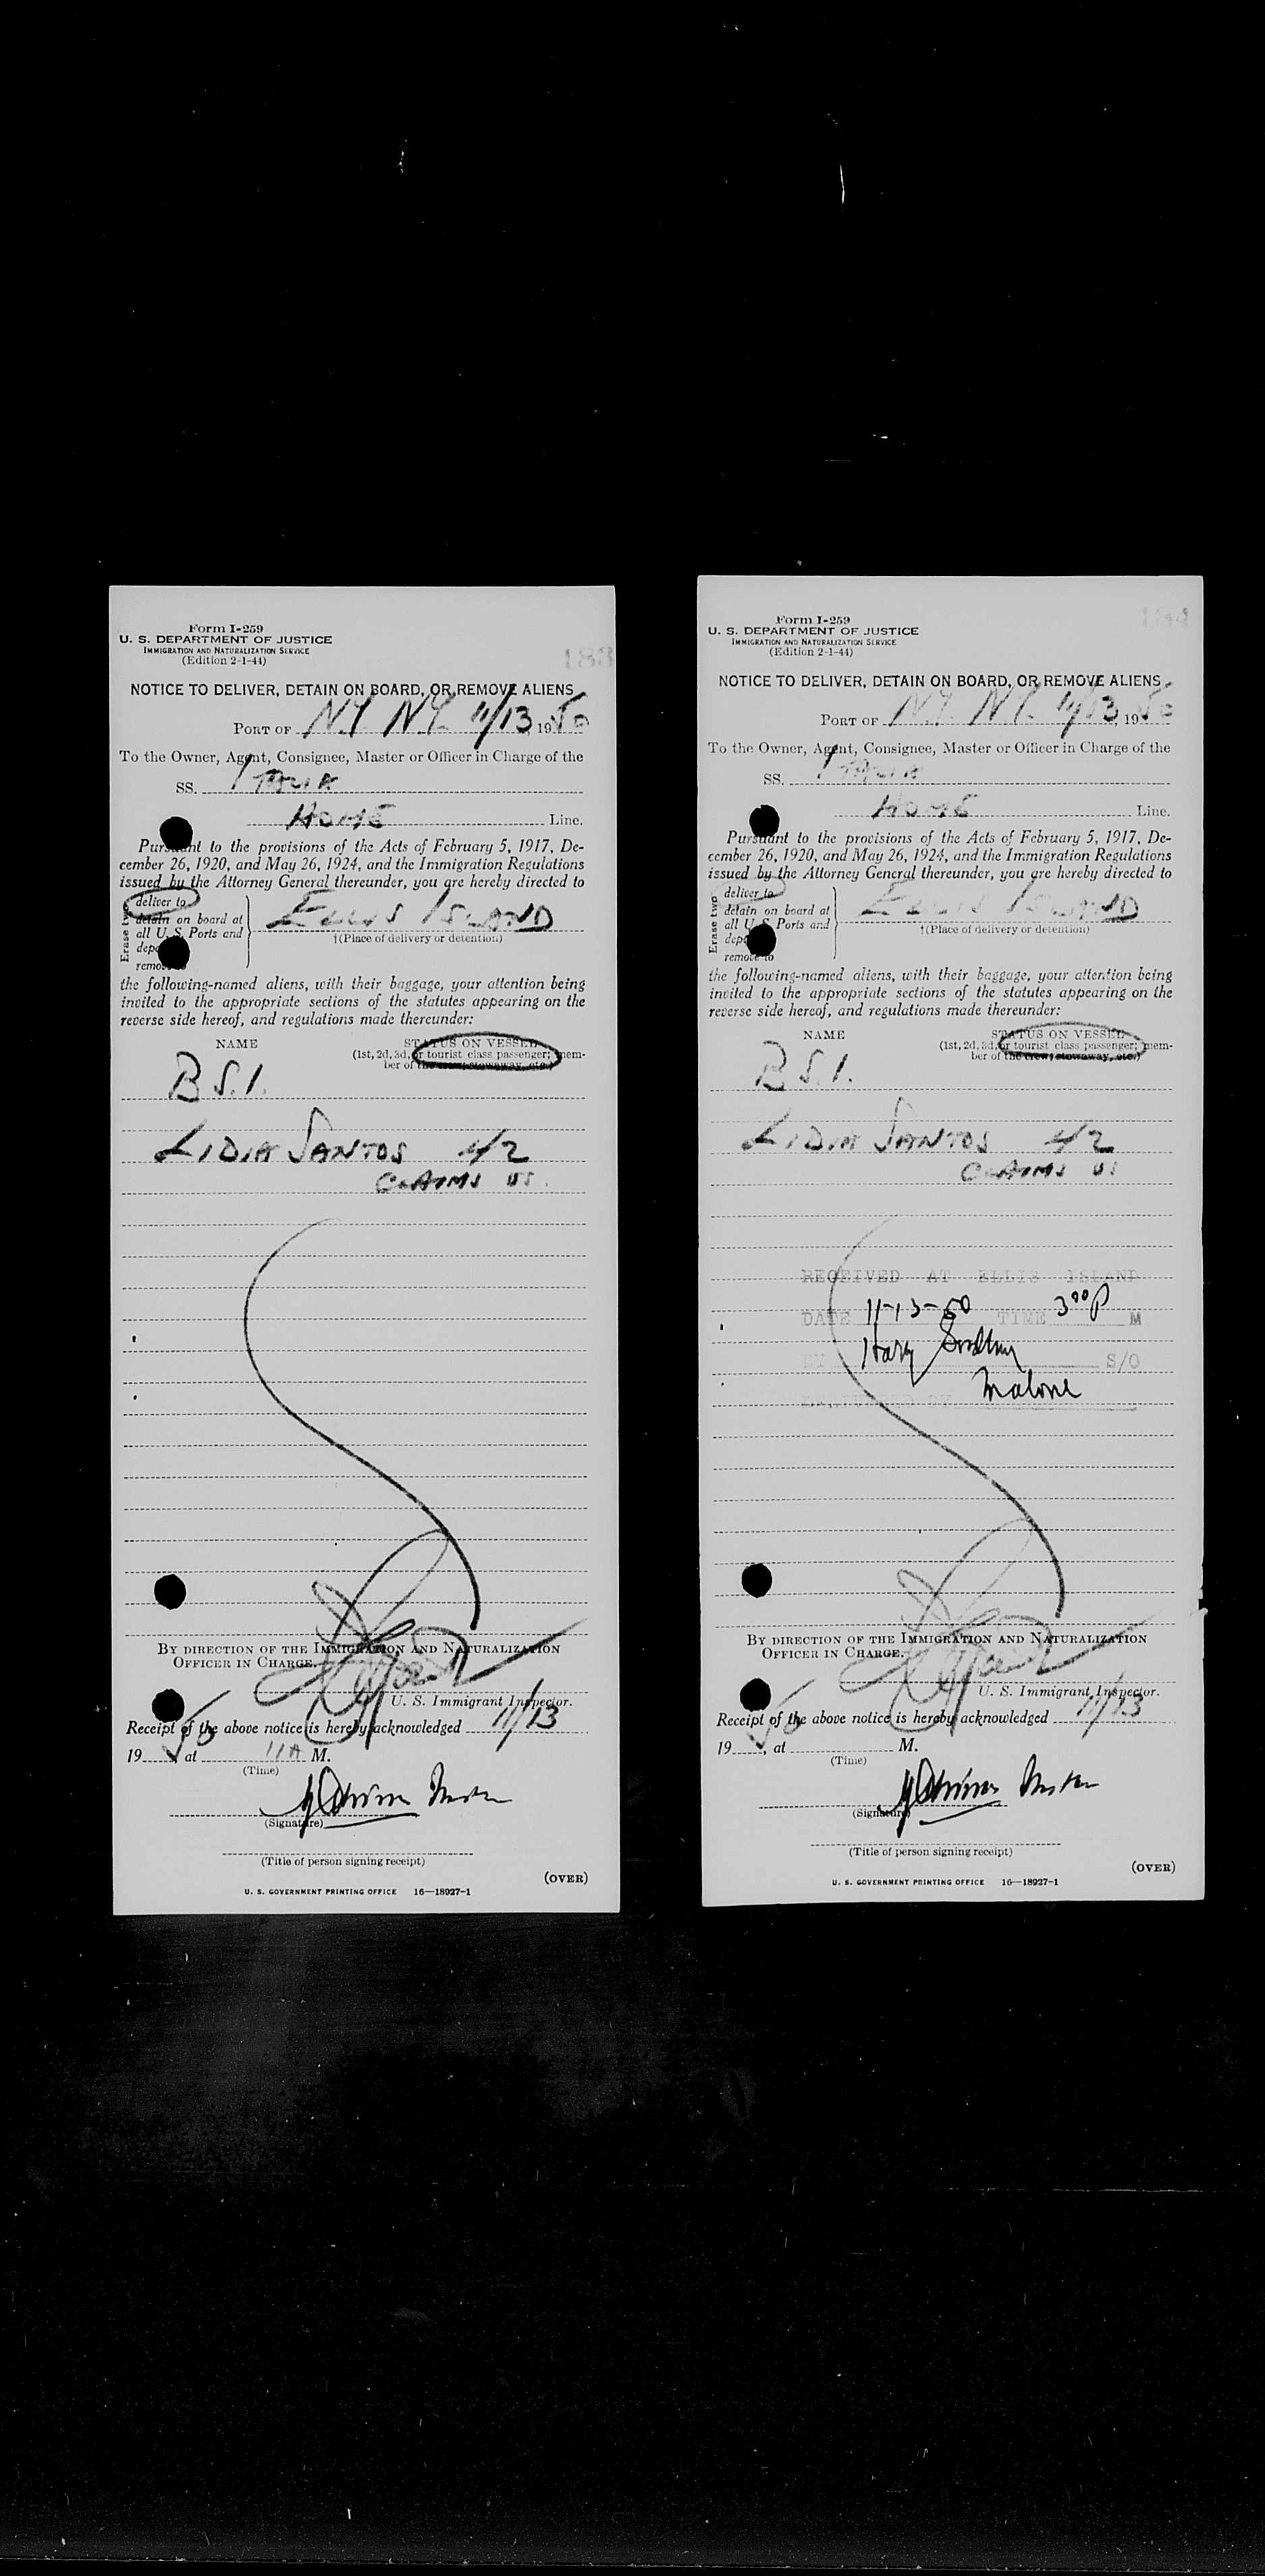 Form I-259
U. S. DEPARTMENT OF JUSTICE
IMMIGRATION AND NATURALIZATION SERVICE
(Edition 2-1-44)
183
NOTICE TO DELIVER, DETAIN ON BOARD, OR REMOVE ALIENS
PORT OF N.Y. N.Y. 11/13, 1950
To the Owner, Agent, Consignee, Master or Officer in Charge of the
SS. ITALIA
HOME Line.
Pursuant to the provisions of the Acts of February 5, 1917, De-
cember 26, 1920, and May 26, 1924, and the Immigration Regulations
issued by the Attorney General thereunder, you are hereby directed to
Erase two
deliver to
detain on board at
all U. S. Ports and
remove to
ELLIS ISLAND
†(Place of delivery or detention)
the following-named aliens, with their baggage, your attention being
invited to the appropriate sections of the statutes appearing on the
reverse side hereof, and regulations made thereunder:
NAME STATUS ON VESSEL
(1st, 2d, 3d, or tourist class passenger; mem-
ber of the crew, stowaway, etc.)
B.S.I.
LIDIA SANTOS 4/2
CLAIMS US.
BY DIRECTION OF THE IMMIGRATION AND NATURALIZATION
OFFICER IN CHARGE.
U. S. Immigrant Inspector.
Receipt of the above notice is hereby acknowledged 11/13
1950, at 11 A M.
(Time)
(Signature)
(Title of person signing receipt)
(OVER)
U. S. GOVERNMENT PRINTING OFFICE 16—18927-1
Form I-259
U. S. DEPARTMENT OF JUSTICE
IMMIGRATION AND NATURALIZATION SERVICE
(Edition 2-1-44)
184
NOTICE TO DELIVER, DETAIN ON BOARD, OR REMOVE ALIENS
PORT OF N.Y. N.Y. 11/13, 1950
To the Owner, Agent, Consignee, Master or Officer in Charge of the
SS. ITALIA
HOME Line.
Pursuant to the provisions of the Acts of February 5, 1917, De-
cember 26, 1920, and May 26, 1924, and the Immigration Regulations
issued by the Attorney General thereunder, you are hereby directed to
Erase two
deliver to
detain on board at
all U. S. Ports and
remove to
ELLIS ISLAND
†(Place of delivery or detention)
the following-named aliens, with their baggage, your attention being
invited to the appropriate sections of the statutes appearing on the
reverse side hereof, and regulations made thereunder:
NAME STATUS ON VESSEL
(1st, 2d, 3d, or tourist class passenger; mem-
ber of the crew, stowaway, etc.)
B.S.I.
LIDIA SANTOS 4/2
CLAIMS US
RECEIVED AT ELLIS ISLAND
DATE 11-13-50 TIME 3:00 P M
BY Harry S/O
DELIVERED BY Malone
BY DIRECTION OF THE IMMIGRATION AND NATURALIZATION
OFFICER IN CHARGE.
U. S. Immigrant Inspector.
Receipt of the above notice is hereby acknowledged 11/13
1950, at M.
(Time)
(Signature)
(Title of person signing receipt)
(OVER)
U. S. GOVERNMENT PRINTING OFFICE 16—18927-1